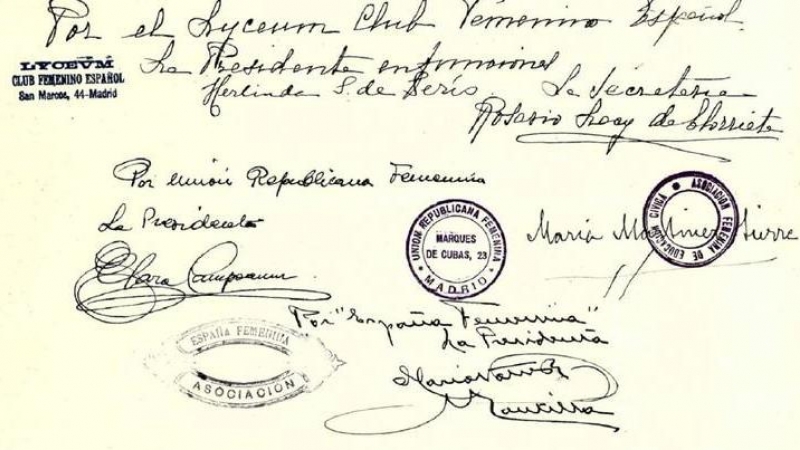 Por el Lyceum Club Femenino Español
La Presidente en funciones
Herlinda S. de Peris. La Secretaria
Rosario Lacy de
LYCEVM
CLUB FEMENINO ESPAÑOL
San Marcos, 44-Madrid
Por Unión Republicana Femenina
La Presidenta
Clara Campoamor
UNION REPUBLICANA FEMENINA
MARQUES
DE CUBAS, 23
MADRID
María Martínez Sierra
ASOCIACION FEMENINA DE EDUCACION CIVICA
Por "España Femenina"
La Presidenta
ESPAÑA FEMENINA
ASOCIACIÓN